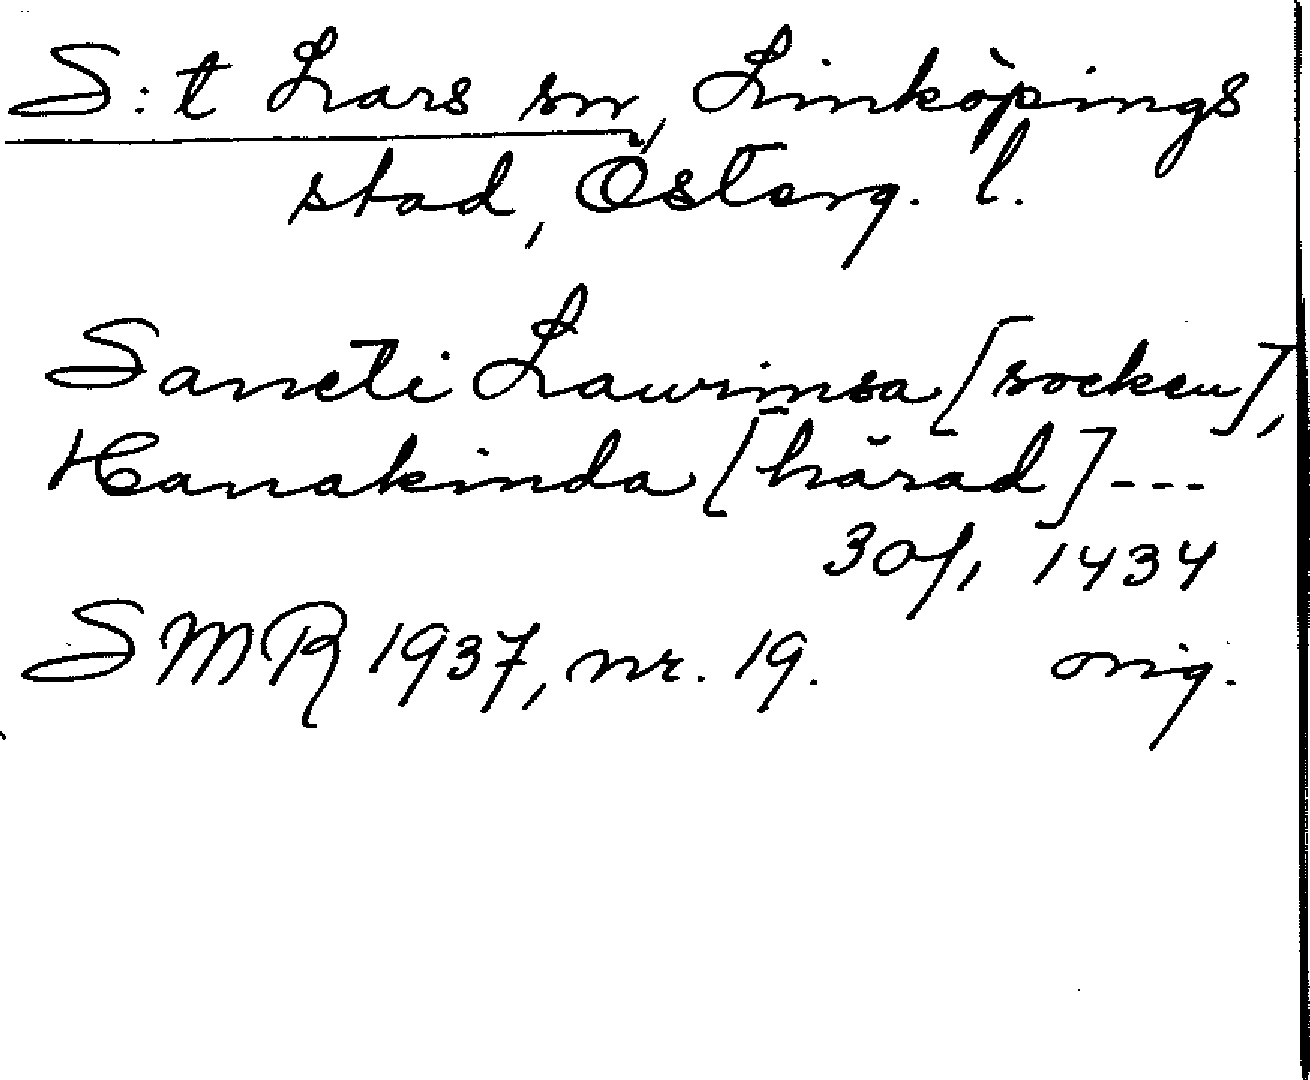 S:t Lars sn, Linköpings
stad, Österg. l.
Sancti Laurinsa [socken],
Hanakinda [härad] ---
30/1 1434
SMR 1937, nr. 19. orig.